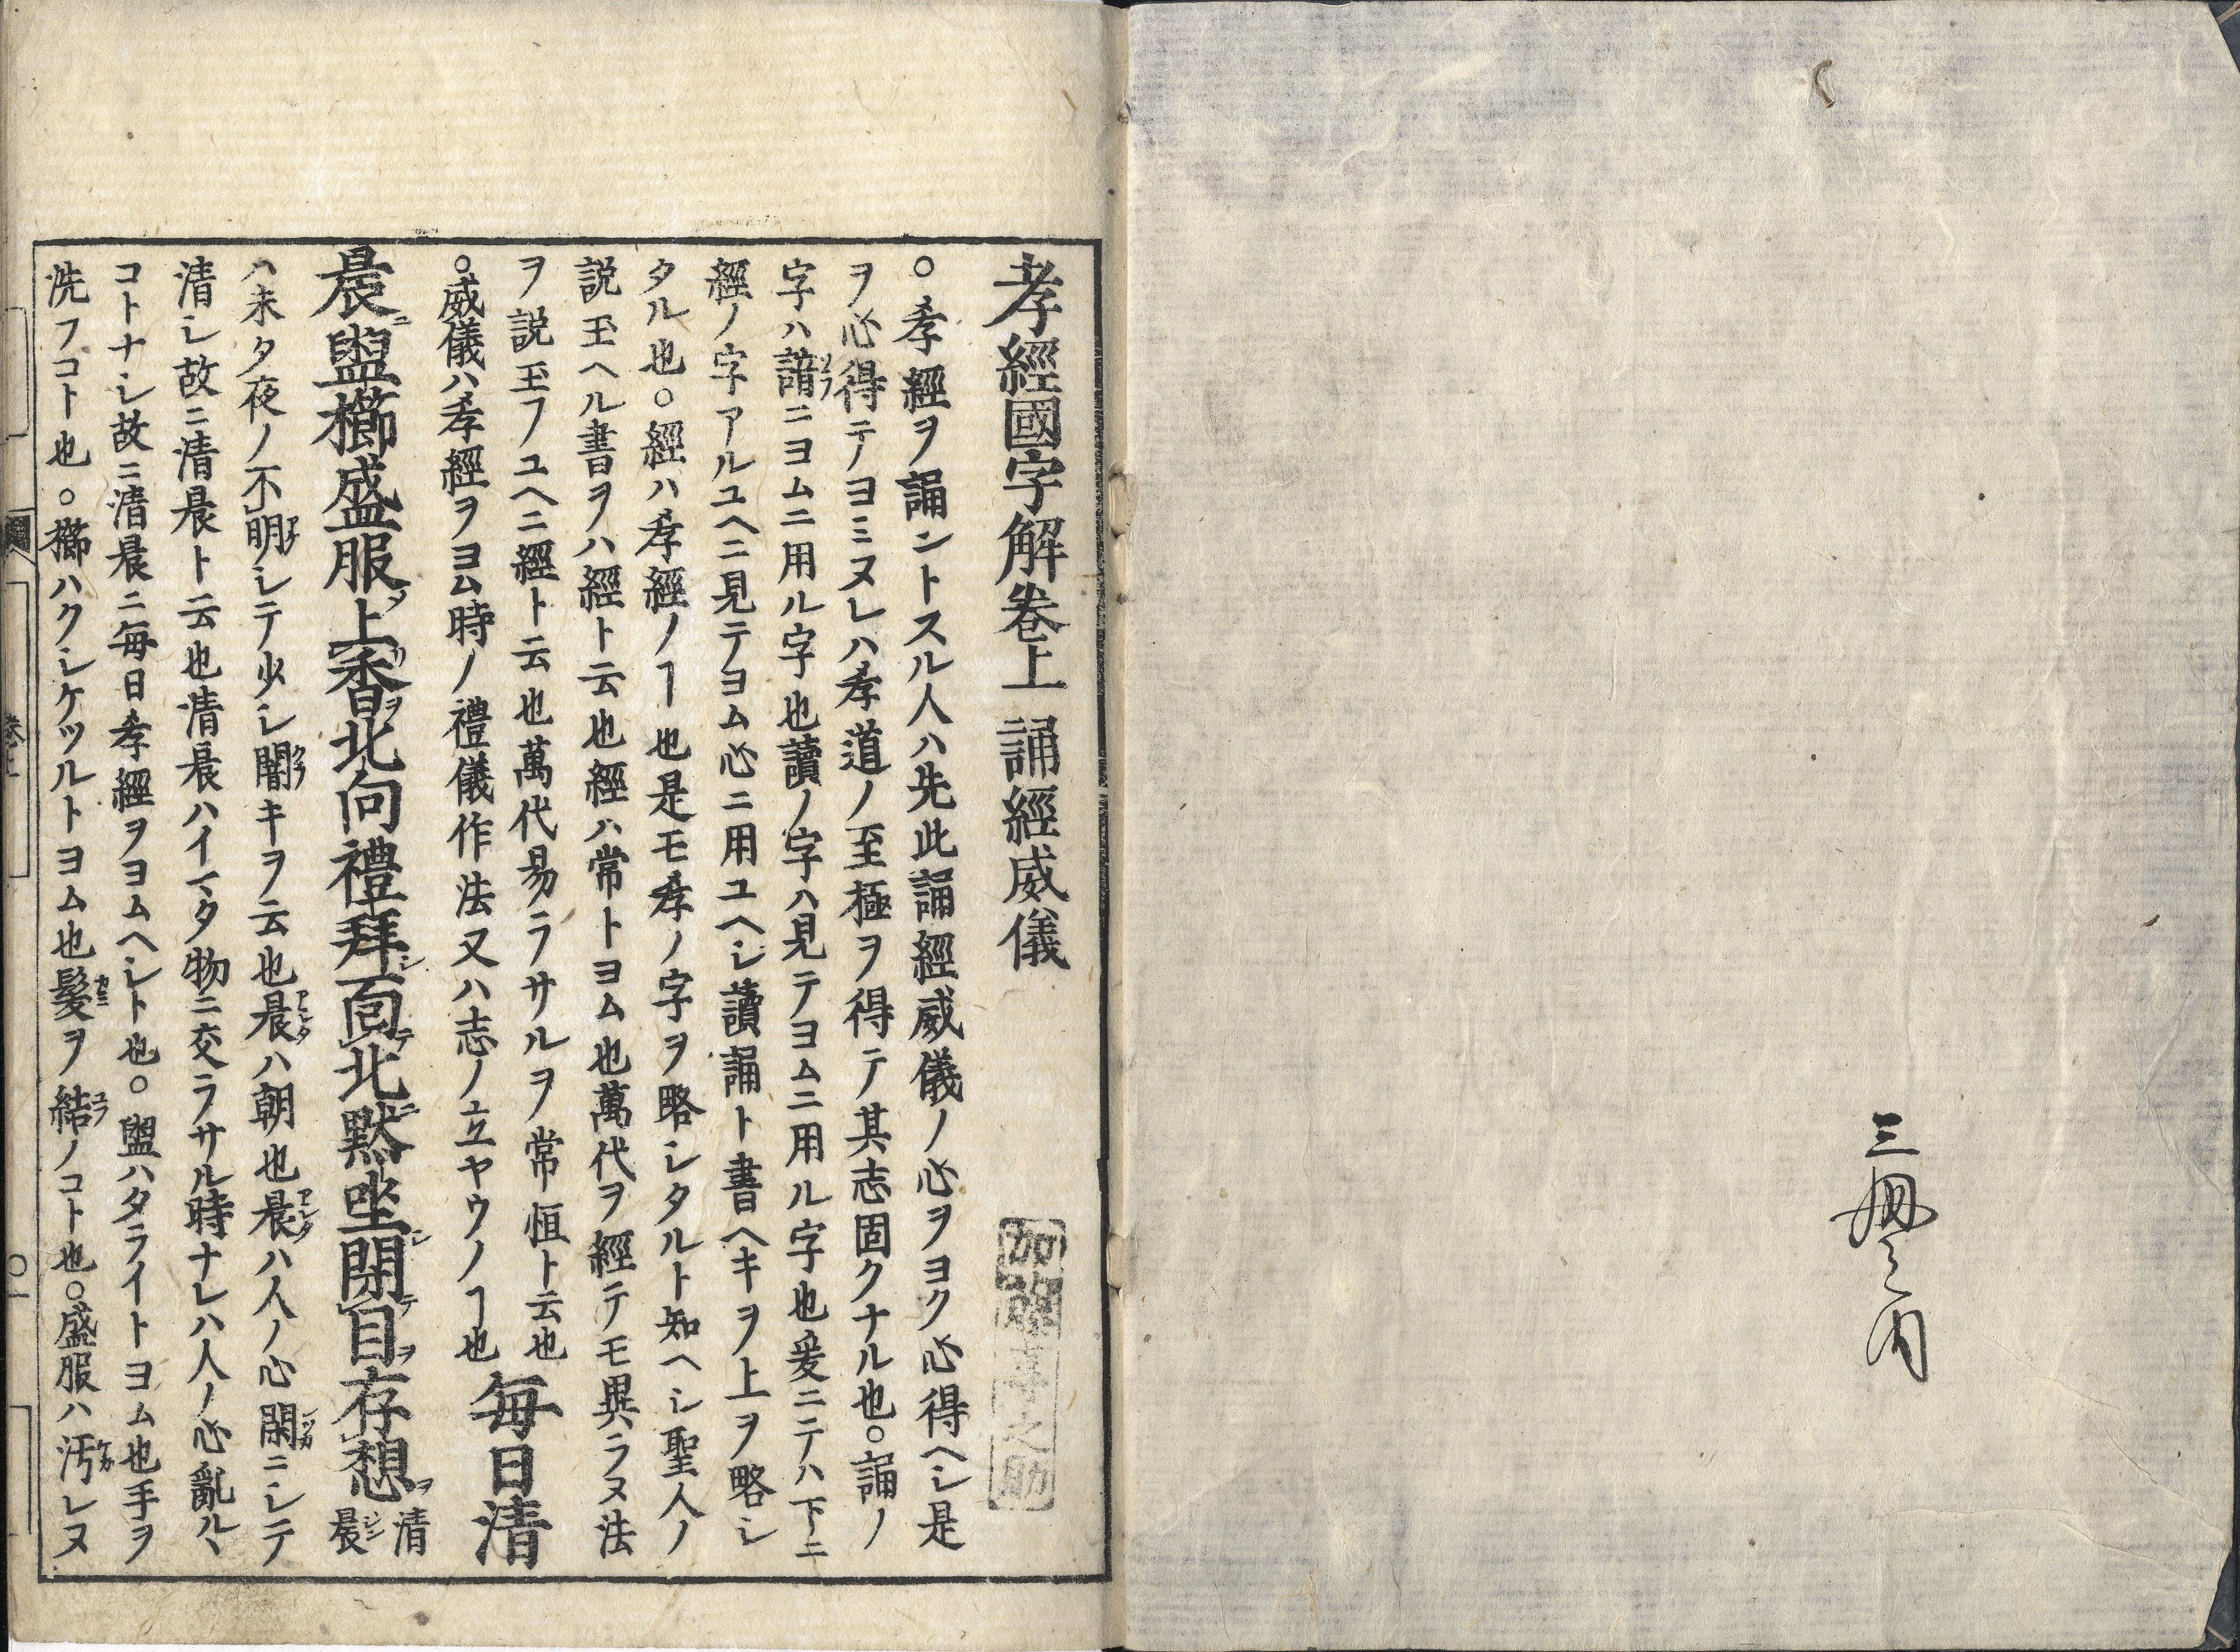 三冊之内
孝經國字解卷上　誦經威儀
○孝經ヲ誦ントスル人ハ先此誦經威儀ノ心ヲヨク心得ヘシ是
ヲ心得テノヨミヌレハ孝道ノ至極ヲ得テ其志固クナル也○誦ノ
字ハ諳ソラニヨムニ用ル字也讀ノ字ハ見テヨムニ用ル字也爰ニテハ下ニ
經ノ字アルユヘニ見テヨム心ニ用ユヘシ讀誦ト書ヘキヲ上ヲ略シ
タル也○經ハ孝經ノヿ也是モ孝ノ字ヲ略シタルト知ヘシ聖人ノ
説玉ヘル書ヲハ經ト云也經ハ常トヨム也萬代ヲ經テモ異ラヌ法
ヲ説玉フユヘニ經ト云也萬代易ラサルヲ常恒ト云也
○威儀ハ孝經ヲヨム時ノ禮儀作法又ハ志ノ立ヤウノヿ也
毎日清
晨ニ盥櫛盛服ヲ上リ香ヲ北向禮拜シ而テ北ニ默坐シ閉テ目ヲ存想ヲ
清晨シン
ハ未タ夜ノ不明アケシテ少シ闇クラキヲ云也晨アシタハ朝也晨アシタハ人ノ心閑シツカニシテ
清シ故ニ清晨ト云也清晨ハイマタ物ニ交ラサル時ナレハ人ノ心亂ルヽ
コトナシ故ニ清晨ニ毎日孝經ヲヨムヘシト也○盥ハタライトヨム也手ヲ
洗フコト也○櫛ハクシケツルトヨム也髮カミヲ結ユフノコト也○盛服ハ汚ケカレヌ